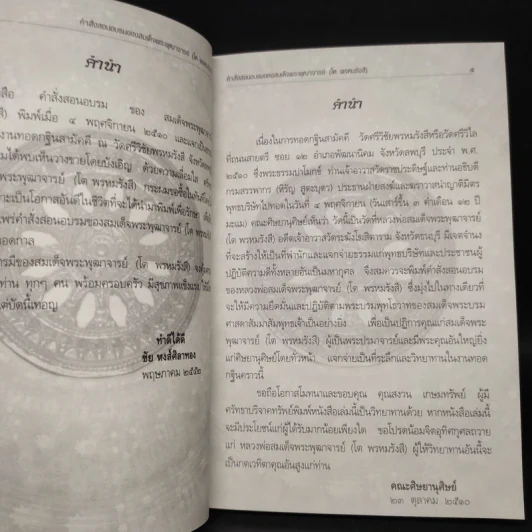 คำสั่งสอนอบรมของสมเด็จพระพุฒาจารย์ (โต พรหมรังสี)
คำนำ
คำสั่งสอนอบรม ของ สมเด็จพระพุฒาจารย์
พิมพ์เมื่อ ๔ พฤศจิกายน ๒๕๑๐ และแจกเป็น
งานทอดกฐินสามัคคี ณ วัดศรีวิชัยพรหมรังสี จังหวัด
ได้พบเห็นวางขายโดยบังเอิญ ด้วยความเลื่อมใส
พระพุฒาจารย์ (โต พรหมรังสี)
เป็นโอกาสอันดีในชีวิตที่จะได้นำมาพิมพ์เพื่อรักษา
คำสั่งสอนอบรมของสมเด็จพระพุฒาจารย์ (โต
ของสมเด็จพระพุฒาจารย์ (โต พรหมรังสี)
ท่าน ทุกๆ คน พร้อมครอบครัว มีสุขภาพแข็งแรง
บัดนี้เทอญ
ทำดีได้ดี
ชัย หงส์ศิลาทอง
พฤษภาคม ๒๕๕๒
คำสั่งสอนอบรมของสมเด็จพระพุฒาจารย์ (โต พรหมรังสี)
คำนำ
เนื่องในการทอดกฐินสามัคคี วัดศรีวิชัยพรหมรังสีหรือวัดศรีวิไล
ที่ถนนสายตรี ซอย ๑๒ อำเภอพัฒนานิคม จังหวัดลพบุรี ประจำ พ.ศ.
๒๕๑๐ ซึ่งพระธรรมปาโมกข์ ท่านเจ้าอาวาสวัดราชประดิษฐ์และท่านอธิบดี
กรมสรรพากร (ศิริญ ลูตะบุตร) ประธานฝ่ายสงฆ์และฆราวาสนำญาติมิตร
พุทธบริษัทไปทอดในวันที่ ๔ พฤศจิกายน (วันเสาร์ขึ้น ๓ ค่ำเดือน ๑๒ ปี
มะแม) คณะศิษยานุศิษย์เห็นว่า วัดนี้เป็นวัดที่หลวงพ่อสมเด็จพระพุฒาจารย์
(โต พรหมรังสี) อดีตเจ้าอาวาสวัดระฆังโฆสิตาราม จังหวัดธนบุรี มีเจตจำนง
ที่จะสร้างให้เป็นที่พำนักและแจกจ่ายธรรมแก่พุทธบริษัทและประชาชนผู้
ปฏิบัติความดีทั้งหลายอันเป็นมหากุศล จึงสมควรจะพิมพ์คำสั่งสอนอบรม
ของหลวงพ่อสมเด็จพระพุฒาจารย์ (โต พรหมรังสี) ซึ่งมุ่งไปในทางเดียวที่
จะให้มีความยึดมั่นและปฏิบัติตามพระบรมพุทโธวาทของสมเด็จพระบรม
ศาสดาสัมมาสัมพุทธเจ้าเป็นอย่างยิ่ง เพื่อเป็นปฏิการคุณแก่สมเด็จพระ
พุฒาจารย์ (โต พรหมรังสี) ผู้เป็นพระปรมาจารย์และมีพระคุณอันใหญ่ยิ่ง
แก่ศิษยานุศิษย์โดยทั่วหน้า แจกจ่ายเป็นที่ระลึกและวิทยาทานในงานทอด
กฐินคราวนี้
ขอถือโอกาสโมทนาและขอบคุณ คุณสงวน เกษมทรัพย์ ผู้มี
ศรัทธาบริจาคทรัพย์พิมพ์หนังสือเล่มนี้เป็นวิทยาทานด้วย หากหนังสือเล่มนี้
จะมีประโยชน์แก่ผู้ได้รับมากน้อยเพียงใด ขอโปรดน้อมจิตอุทิศกุศลถวาย
แก่ หลวงพ่อสมเด็จพระพุฒาจารย์ (โต พรหมรังสี) ผู้ให้วิทยาทานอันนี้จะ
เป็นกตเวทิตาคุณอันสูงแก่ท่าน
คณะศิษยานุศิษย์
๒๓ ตุลาคม ๒๕๑๐